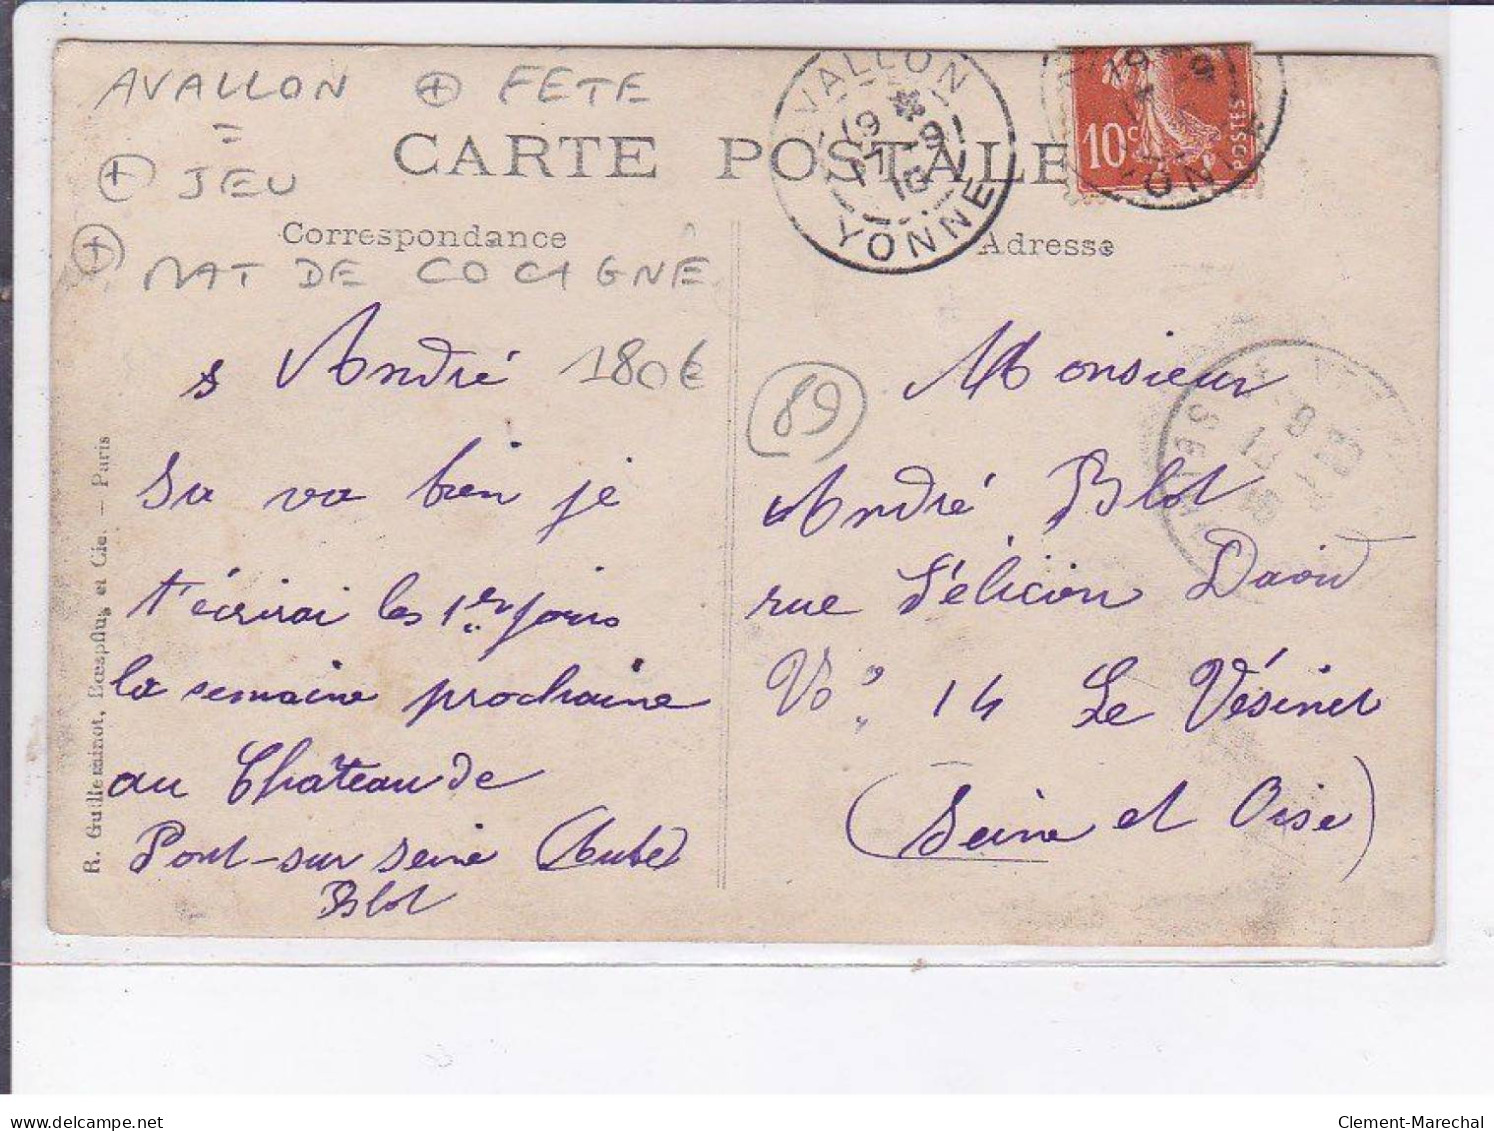 AVALLON + FETE
=
+ JEU
+ MAT DE COCAGNE
CARTE POSTALE
Correspondance
Adresse
AVALLON
YONNE
19 * 
17 -9
10
10c
POSTES
YONNE
s André 180€
Sa va bien je
t'écrirai les 1ers jours
la semaine prochaine
au Château de
Pont-sur Seine (Aube)
Blot
89
Monsieur
André Blot
rue Félicien David
No 14 Le Vésinet
(Seine et Oise)
R. Guilleminot, Bœspflug et Cie. — Paris
delcampe.net
Clement-Marechal